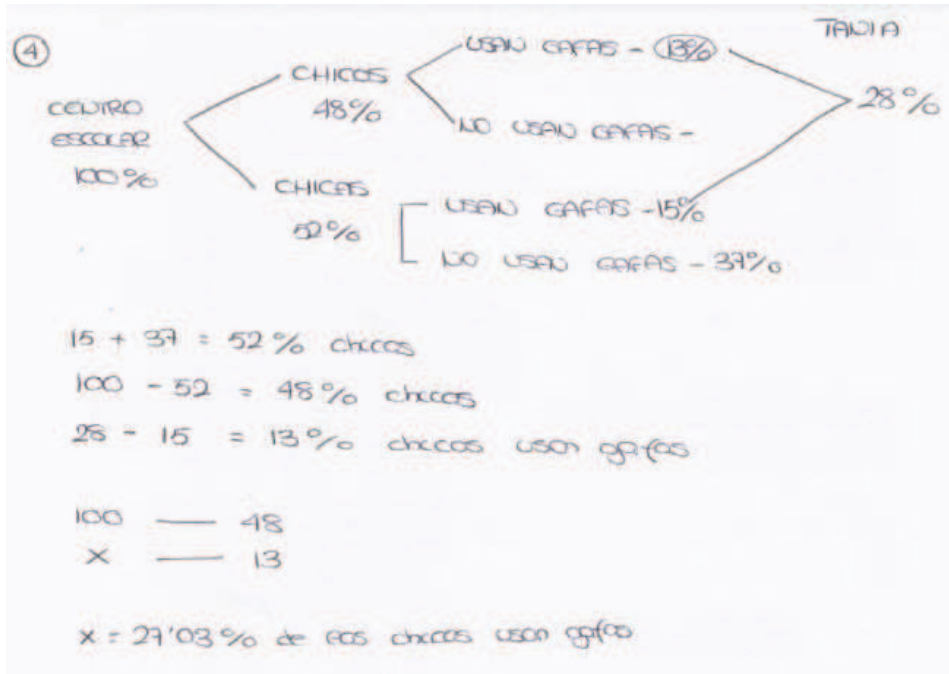 TANIA
④
USAN GAFAS - 13%
CHICOS
48%
28%
CENTRO
ESCOLAR
100%
NO USAN GAFAS -
CHICAS
52%
USAN GAFAS - 15%
NO USAN GAFAS - 37%
15 + 37 = 52% chicas
100 - 52 = 48% chicos
28 - 15 = 13% chicos usan gafas
100 — 48
X — 13
X = 27'03% de los chicos usan gafas